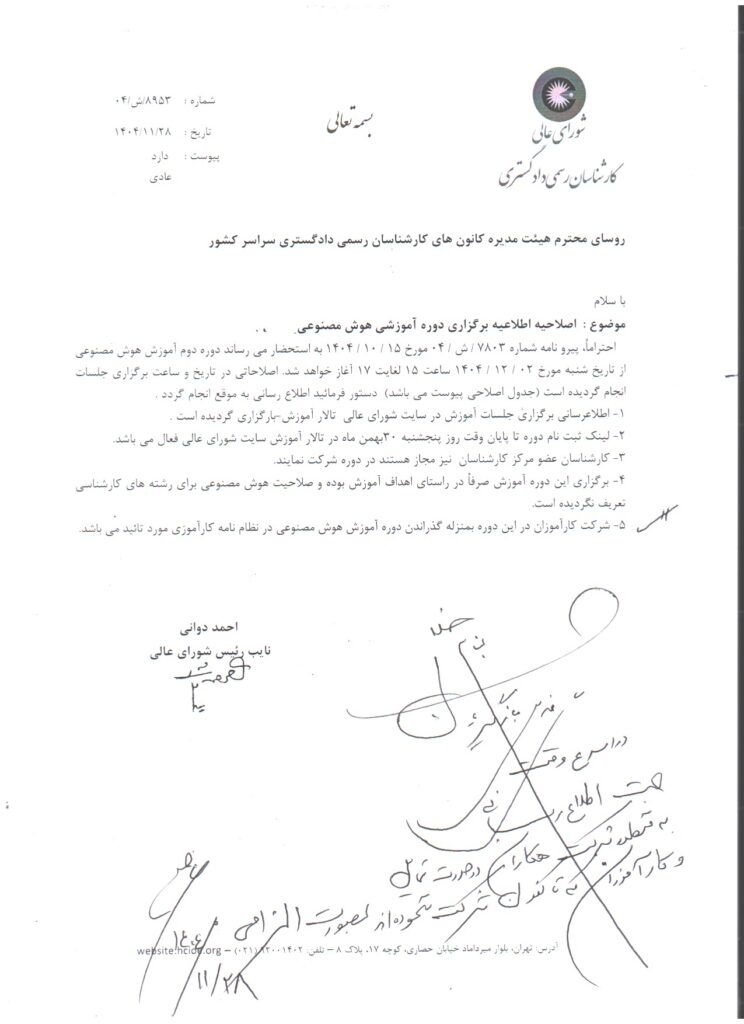 بسمه تعالی
شورای عالی
کارشناسان رسمی دادگستری
شماره : ۸۹۵۳/ش/۰۴
تاریخ : ۱۴۰۴/۱۱/۲۸
پیوست : دارد
عادی
روسای محترم هیئت مدیره کانون های کارشناسان رسمی دادگستری سراسر کشور
با سلام
موضوع : اصلاحیه اطلاعیه برگزاری دوره آموزشی هوش مصنوعی
احتراماً، پیرو نامه شماره ۷۸۰۳ / ش / ۰۴ مورخ ۱۵ / ۱۰ / ۱۴۰۴ به استحضار می رساند دوره دوم آموزش هوش مصنوعی
از تاریخ شنبه مورخ ۰۲ / ۱۲ / ۱۴۰۴ ساعت ۱۵ لغایت ۱۷ آغاز خواهد شد. اصلاحاتی در تاریخ و ساعت برگزاری جلسات
انجام گردیده است (جدول اصلاحی پیوست می باشد) دستور فرمائید اطلاع رسانی به موقع انجام گردد .
۱- اطلاعرسانی برگزاری جلسات آموزش در سایت شورای عالی تالار آموزش-بارگزاری گردیده است .
۲- لینک ثبت نام دوره تا پایان وقت روز پنجشنبه ۳۰بهمن ماه در تالار آموزش سایت شورای عالی فعال می باشد.
۳- کارشناسان عضو مرکز کارشناسان نیز مجاز هستند در دوره شرکت نمایند.
۴- برگزاری این دوره آموزش صرفاً در راستای اهداف آموزش بوده و صلاحیت هوش مصنوعی برای رشته های کارشناسی
تعریف نگردیده است.
۵- شرکت کارآموزان در این دوره بمنزله گذراندن دوره آموزش هوش مصنوعی در نظام نامه کارآموزی مورد تائید می باشد.
احمد دوانی
نایب رئیس شورای عالی
در اسرع وقت
جهت اطلاع رسانی
همکاران در صورت تمایل
و کارآموزان که تا کنون شرکت ننموده اند بصورت الزامی
۱۴۰۴
۱۱/۲۸
آدرس: تهران، بلوار میرداماد خیابان حصاری، کوچه ۱۷، پلاک ۸ – تلفن: ۹۲۰۰۱۴۰۲ (۰۲۱) – website:hcioe.org